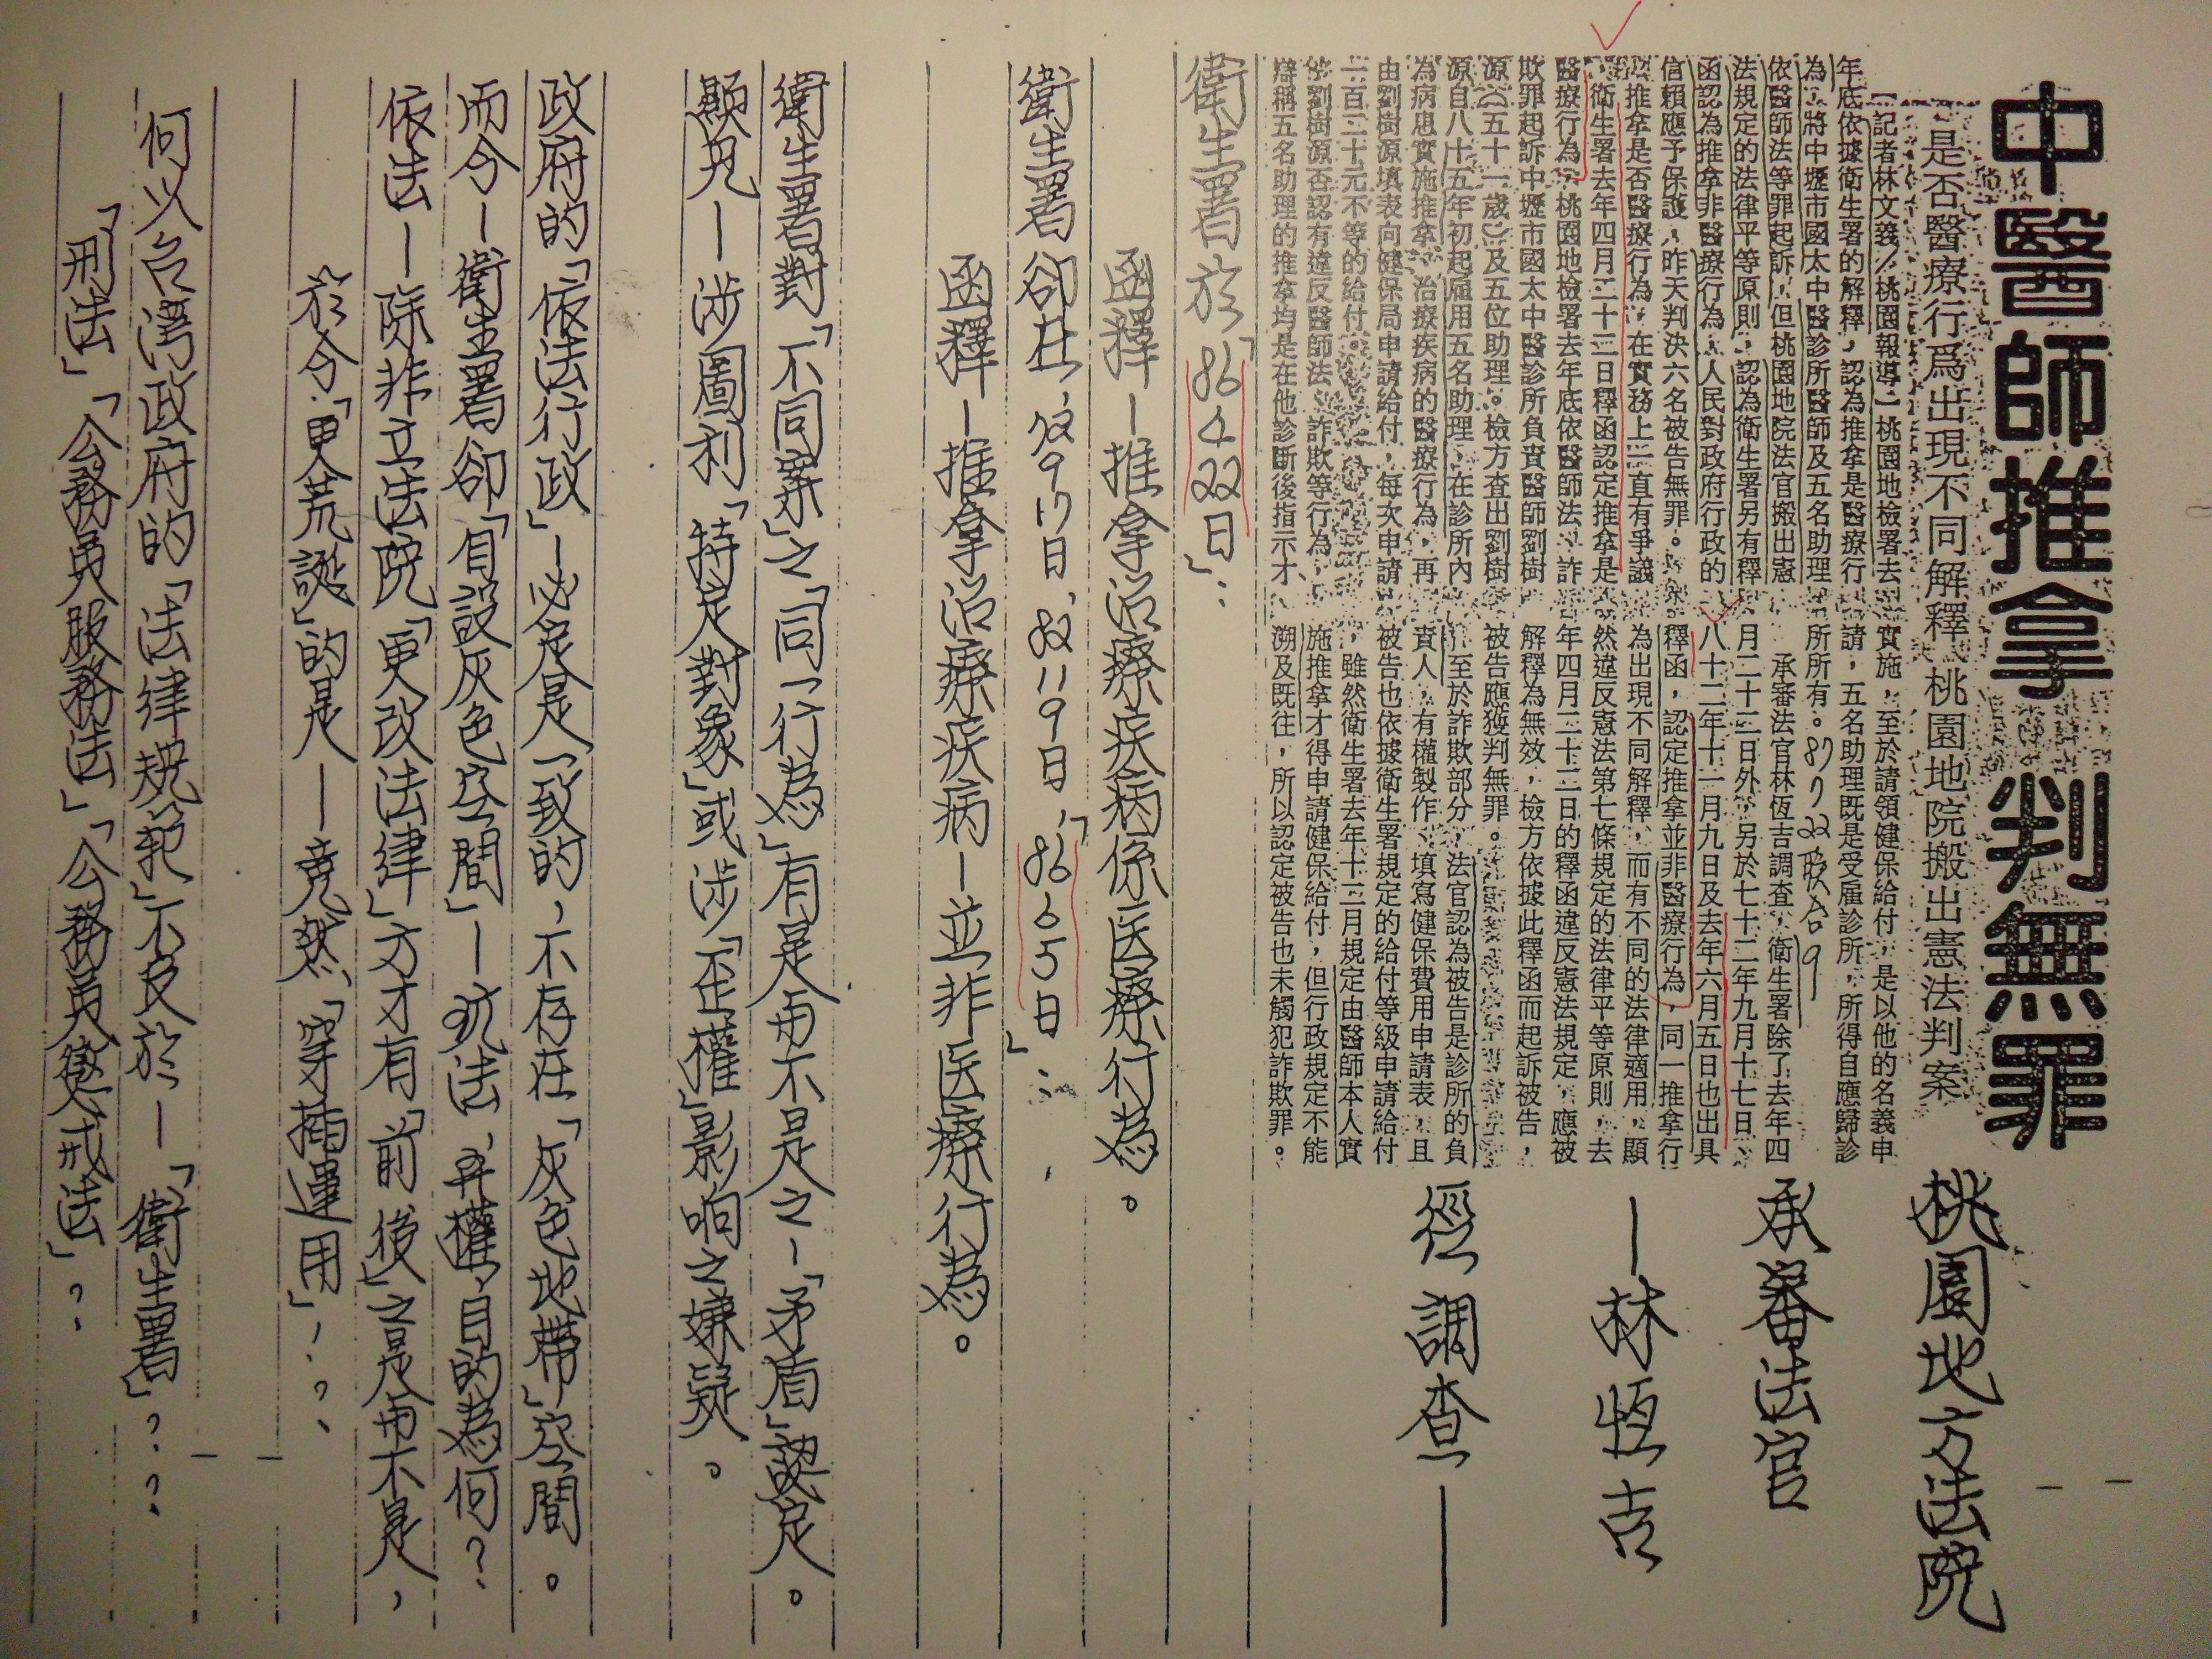 中醫師推拿判無罪
是否醫療行爲出現不同解釋 桃園地院搬出憲法判案
【記者林文義╱桃園報導】桃園地檢署去
年底依據衛生署的解釋，認為推拿是醫療行
為，將中壢市國太中醫診所醫師及五名助理
依醫師法等罪起訴，但桃園地院法官搬出憲
法規定的法律平等原則，認為衛生署另有釋
函認為推拿非醫療行為，人民對政府行政的
信賴應予保護，昨天判決六名被告無罪。
推拿是否醫療行為，在實務上一直有爭議
，衛生署去年四月二十二日釋函認定推拿是
醫療行為，桃園地檢署去年底依醫師法、詐
欺罪起訴中壢市國太中醫診所負責醫師劉樹
源（五十一歲）及五位助理。檢方查出劉樹
源自八十五年初起雇用五名助理，在診所內
為病患實施推拿、治療疾病的醫療行為，再
由劉樹源填表向健保局申請給付，每次申請
一百二十元不等的給付。
劉樹源否認有違反醫師法、詐欺等行為，
辯稱五名助理的推拿均是在他診斷後指示才
實施，至於請領健保給付，是以他的名義申
請，五名助理既是受雇診所，所得自應歸診
所所有。87 7 22 聯合 9
承審法官林恆吉調查，衛生署除了去年四
月二十二日外，另於七十二年九月十七日、
八十二年十一月九日及去年六月五日也出具
釋函，認定推拿並非醫療行為，同一推拿行
為出現不同解釋，而有不同的法律適用，顯
然違反憲法第七條規定的法律平等原則，去
年四月二十二日的釋函違反憲法規定，應被
解釋為無效，檢方依據此釋函而起訴被告，
被告應獲判無罪。
至於詐欺部分，法官認為被告是診所的負
責人，有權製作、填寫健保費用申請表，且
被告也依據衛生署規定的給付等級申請給付
，雖然衛生署去年十二月規定由醫師本人實
施推拿才得申請健保給付，但行政規定不能
溯及既往，所以認定被告也未觸犯詐欺罪。
桃園地方法院
承審法官
—林恆吉
徑調查—
衛生署於「86 4 22日」：
函釋—推拿治療疾病係医療行為。
衛生署卻在，72 9 17日，82 11 9日，「86 6 5日」：
函釋—推拿治療疾病—並非医療行為。
衛生署對「不同案」之「同一行為」有是與不是之—「矛盾」認定。
顯見—涉圖利「特定對象」或涉「歪權」影响之嫌疑。
政府的「依法行政」—必定是一致的，不存在「灰色地帶」空間。
而今—衛生署卻「自設灰色空間」—玩法，弄權，目的為何？
依法—除非立法院「更改法律」方才有「前、後」之是與不是，
於今，「更荒誕」的是—竟然，「穿插運用」！？、
何以台湾政府的「法律規範」不及於—「衛生署」？？？
「刑法」「公務員服務法」「公務員懲戒法」？？